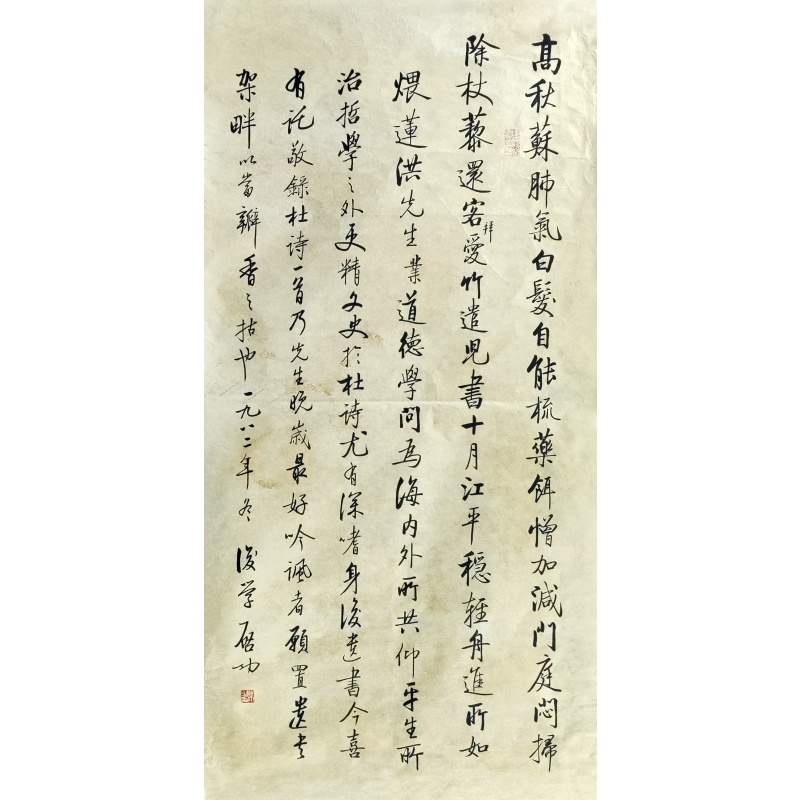 高秋蘇肺氣白髮自能梳藥餌憎加減門庭悶掃
除杖藜還客愛竹遣兒書十月江平穩輕舟進所如
拜
煨蓮洪先生業道德學問為海內外所共仰平生所
治哲學之外更精文史於杜詩尤有深嗜身後遺書今喜
有託敬錄杜詩一首乃先生晚歲最好吟諷者願置遺書
架畔以當瓣香之拈也一九八二年冬後學啟功